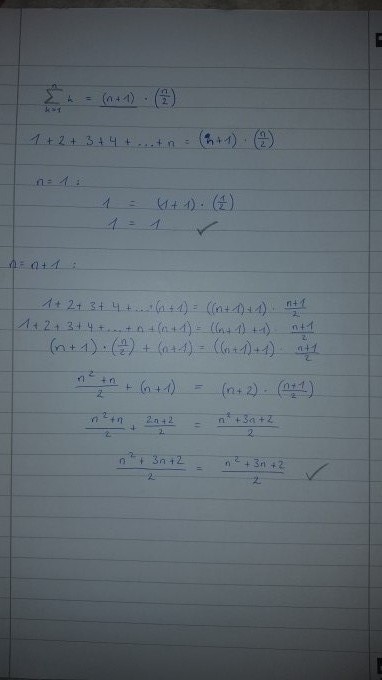 n
∑ k = (n+1) · (n/2)
k=1
1 + 2 + 3 + 4 + ... + n = (n+1) · (n/2)
n = 1 :
1 = (1+1) · (1/2)
1 = 1 ✓
n = n+1 :
1 + 2 + 3 + 4 + ... + (n+1) = ((n+1)+1) · n+1/2
1 + 2 + 3 + 4 + ... + n + (n+1) = ((n+1)+1) · n+1/2
(n+1) · (n/2) + (n+1) = ((n+1)+1) · n+1/2
n²+n/2 + (n+1) = (n+2) · (n+1/2)
n²+n/2 + 2n+2/2 = n²+3n+2/2
n²+3n+2/2 = n²+3n+2/2 ✓